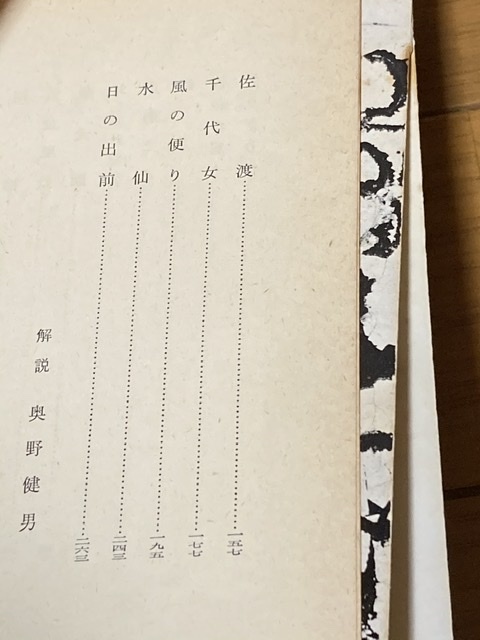 佐渡……一五七
千代女……一七七
風の便り……一九五
水仙……二四三
日の出前……二六三
解説 奥野健男